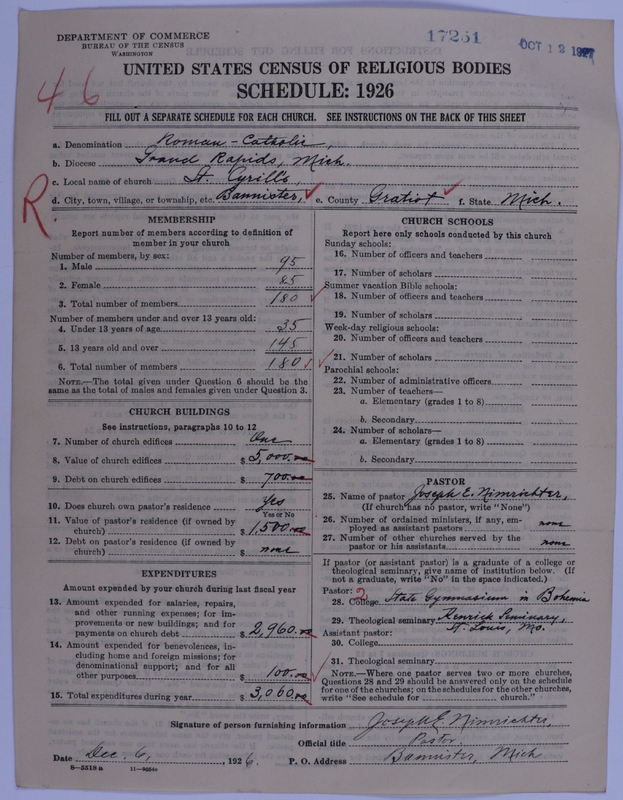 DEPARTMENT OF COMMERCE
BUREAU OF THE CENSUS
WASHINGTON
17251
OCT 12 1927
UNITED STATES CENSUS OF RELIGIOUS BODIES
SCHEDULE: 1926
46
FILL OUT A SEPARATE SCHEDULE FOR EACH CHURCH. SEE INSTRUCTIONS ON THE BACK OF THIS SHEET
R
a. Denomination Roman-Catholic,
b. Diocese Grand Rapids, Mich.
c. Local name of church St. Cyrills,
d. City, town, village, or township, etc. Bannister, e. County Gratiot f. State Mich.
MEMBERSHIP
Report number of members according to definition of
member in your church
Number of members, by sex:
1. Male 95
2. Female 85
3. Total number of members 180
Number of members under and over 13 years old:
4. Under 13 years of age 35
5. 13 years old and over 145
6. Total number of members 180
NOTE.—The total given under Question 6 should be the
same as the total of males and females given under Question 3.
CHURCH BUILDINGS
See instructions, paragraphs 10 to 12
7. Number of church edifices One
8. Value of church edifices $ 5,000.00
9. Debt on church edifices $ 700.00
10. Does church own pastor's residence Yes
Yes or No
11. Value of pastor's residence (if owned by
church) $ 1,500.00
12. Debt on pastor's residence (if owned by
church) $ none
EXPENDITURES
Amount expended by your church during last fiscal year
13. Amount expended for salaries, repairs,
and other running expenses; for im-
provements or new buildings; and for
payments on church debt $ 2,960.00
14. Amount expended for benevolences, in-
cluding home and foreign missions; for
denominational support; and for all
other purposes $ 100.00
15. Total expenditures during year $ 3,060.00
CHURCH SCHOOLS
Report here only schools conducted by this church
Sunday schools:
16. Number of officers and teachers
17. Number of scholars
Summer vacation Bible schools:
18. Number of officers and teachers
19. Number of scholars
Week-day religious schools:
20. Number of officers and teachers
21. Number of scholars
Parochial schools:
22. Number of administrative officers
23. Number of teachers—
a. Elementary (grades 1 to 8)
b. Secondary
24. Number of scholars—
a. Elementary (grades 1 to 8)
b. Secondary
PASTOR
25. Name of pastor Joseph E. Nimrichter,
(If church has no pastor, write "None")
26. Number of ordained ministers, if any, em-
ployed as assistant pastors none
27. Number of other churches served by the
pastor or his assistants none
If pastor (or assistant pastor) is a graduate of a college or
theological seminary, give name of institution below. (If
not a graduate, write "No" in the space indicated.)
Pastor: 2
28. College State Gymnasium in Bohemia
29. Theological seminary Kenrick Seminary,
St. Louis, Mo.
Assistant pastor:
30. College
31. Theological seminary
NOTE.—Where one pastor serves two or more churches,
Questions 28 and 29 should be answered only on the schedule
for one of the churches; on the schedules for the other churches,
write "See schedule for church."
Signature of person furnishing information Joseph E Nimrichter,
Official title Pastor
Date Dec. 6, 1926. P. O. Address Bannister, Mich
8-5518 a